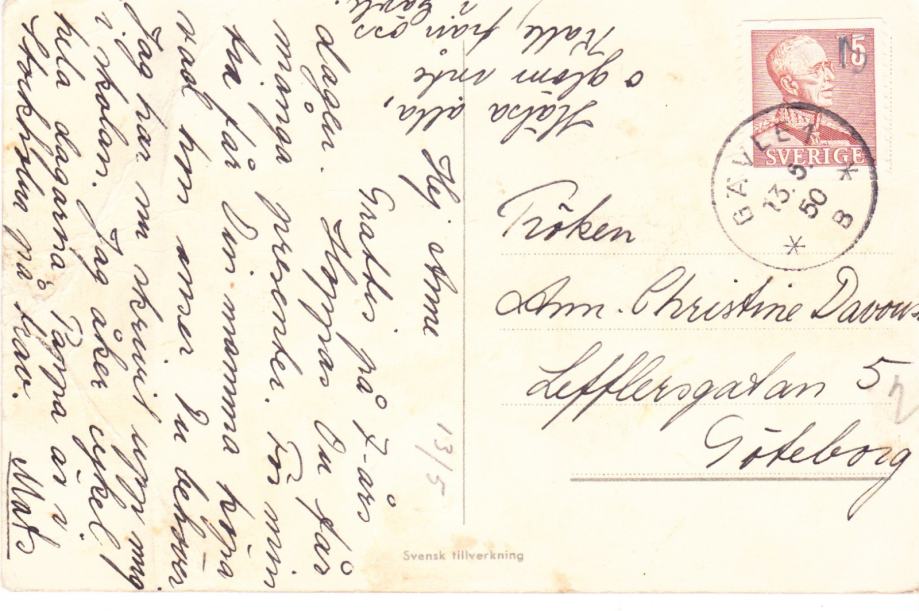 Hej Anne
Grattis på 7-års
dagen. Hoppas Du får
många presenter. För min
bia får Din mamma köpa
vad hon anser Du behöver
Jag har nu skrivit upp mig
i skolan. Jag åker cykel
hela dagarna. Pappa är i
Stockholm på trav.
Mats
Hälsa alla,
o glöm inte
Kalle, från oss
i Gävle.
13/5
15
SVERIGE
GÄVLE 1
13. 5.
50
B
Fröken
Ann. Christine Davou
Lefflersgatan 5
Göteborg
Svensk tillverkning